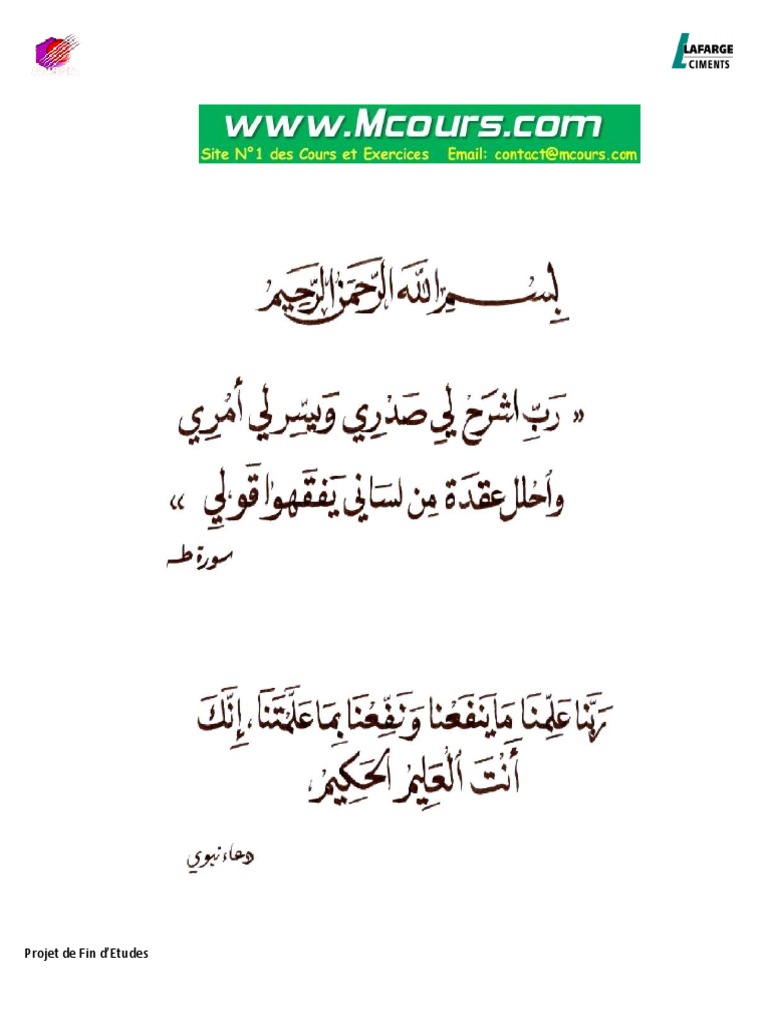 LAFARGE
CIMENTS
www.Mcours.com
Site N°1 des Cours et Exercices Email: contact@mcours.com
بِسْمِ اللهِ الرَّحْمَنِ الرَّحِيمِ
« رَبِّ اشْرَحْ لِي صَدْرِي وَيَسِّرْ لِي أَمْرِي
وَاحْلُلْ عُقْدَةً مِن لِسَانِي يَفْقَهُوا قَوْلِي »
سورة طه
رَبَّنَا عَلِّمْنَا مَا يَنْفَعُنَا وَنَفِّعْنَا بِمَا عَلَّمْتَنَا، إِنَّكَ
أَنْتَ الْعَلِيمُ الْحَكِيمُ،
دعاء نبوي
Projet de Fin d'Etudes